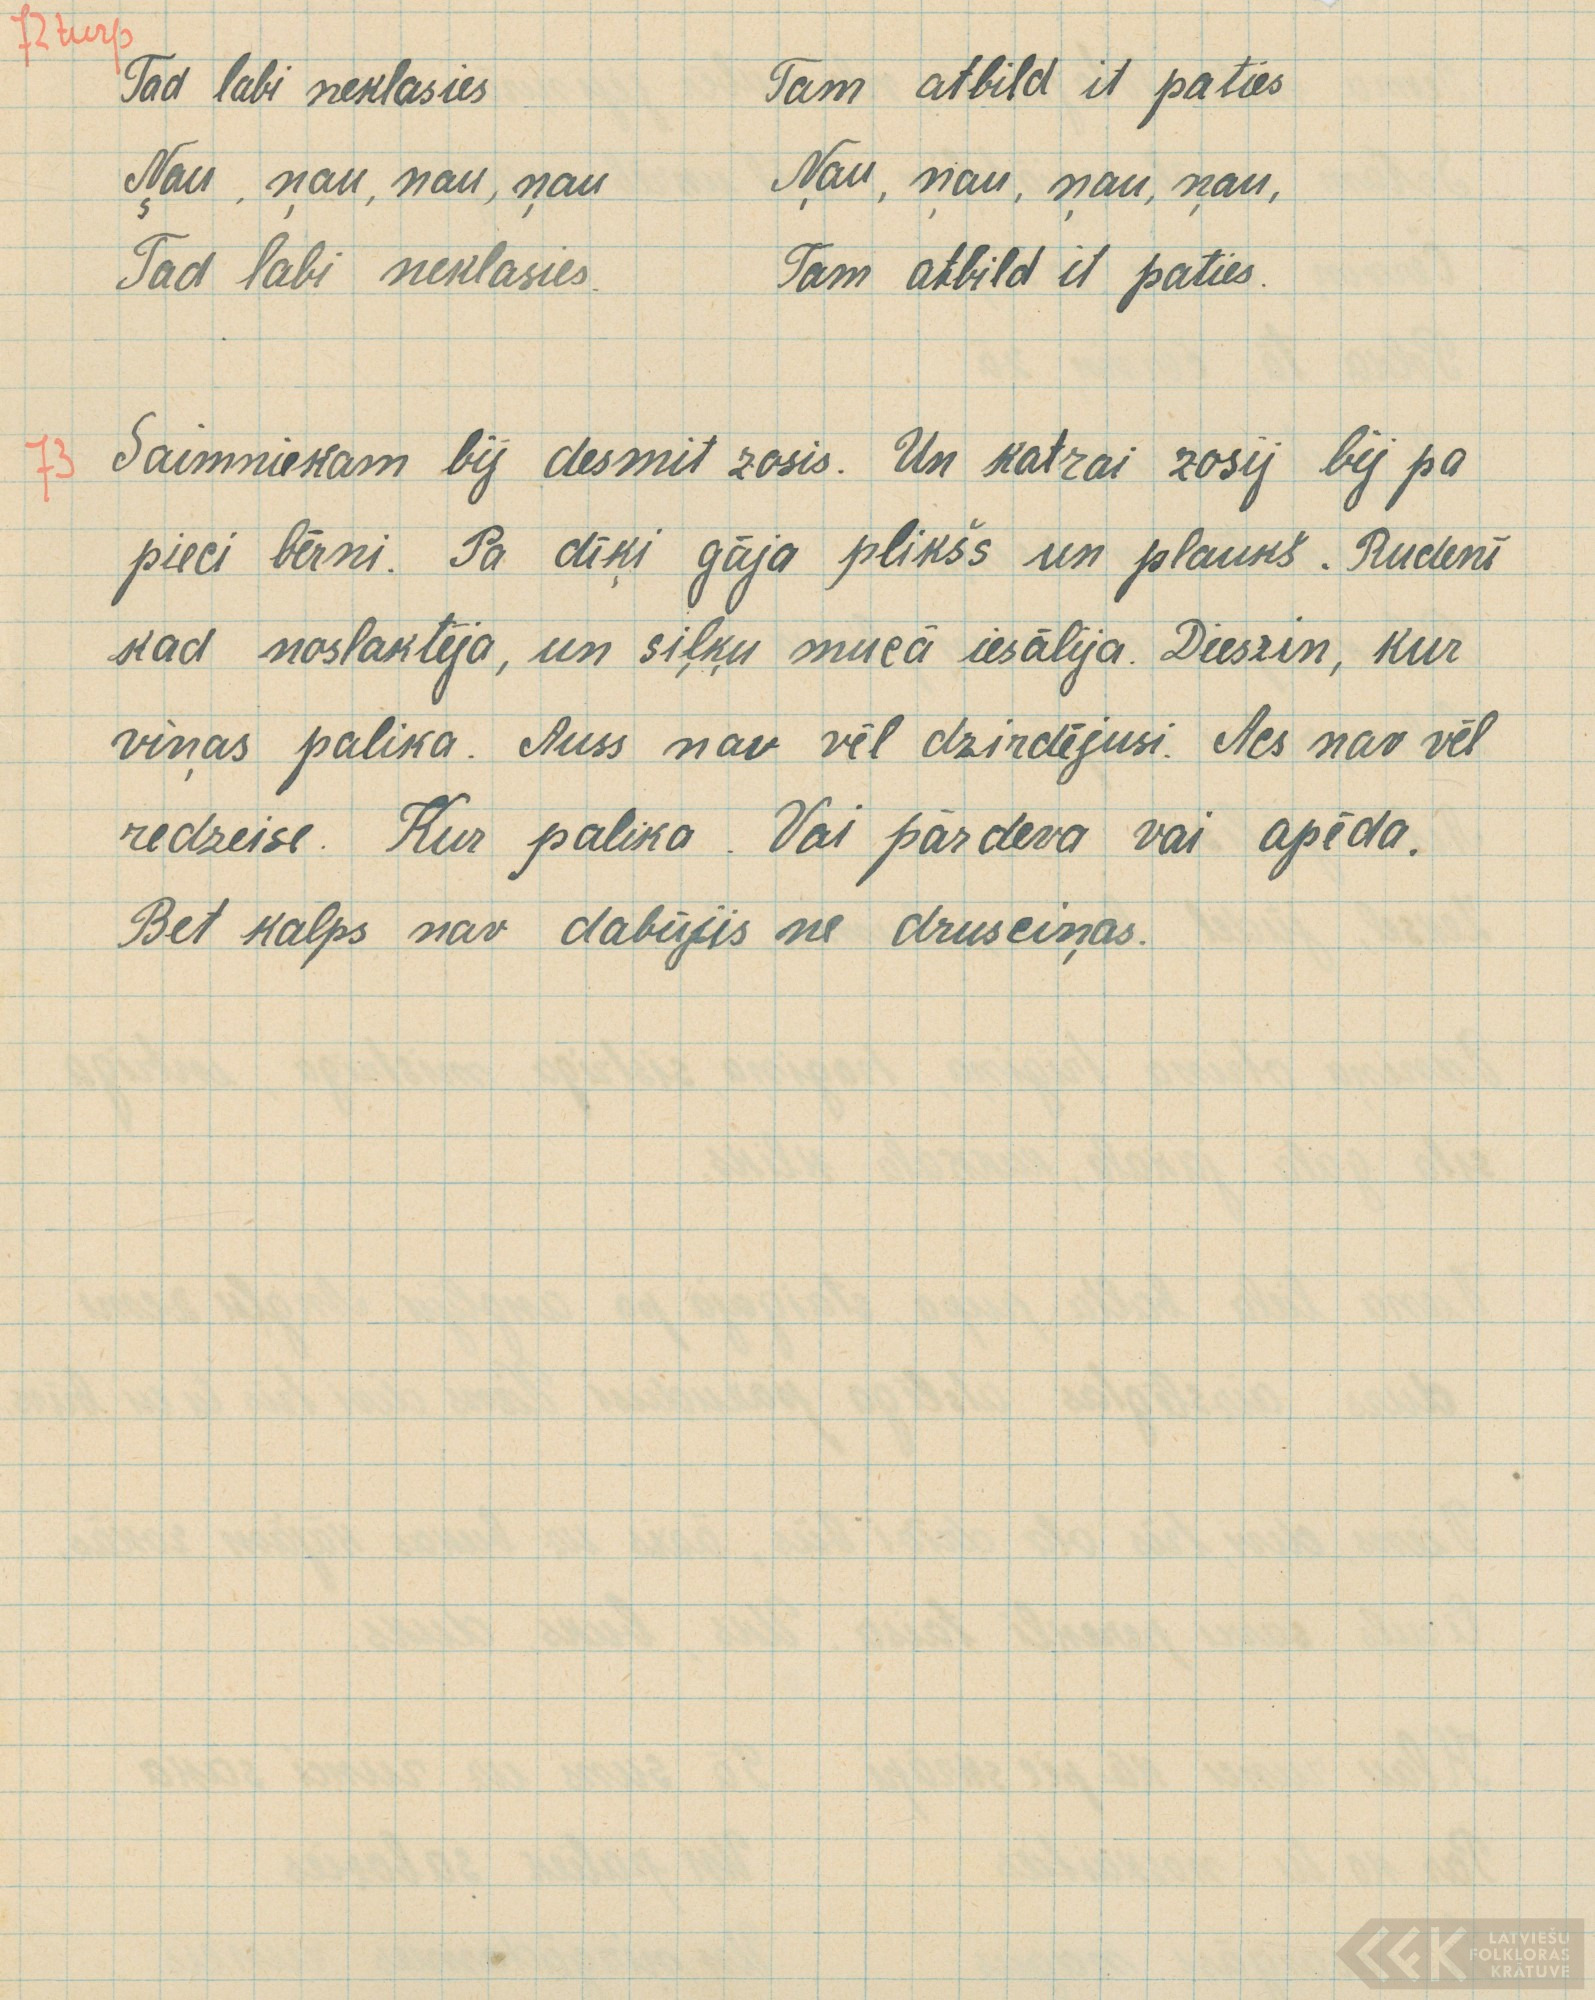 72 turp
Tad labi neklasies
Ņau, ņau, nau, ņau
Tad labi neklasies.
Tam atbild it paties
Ņau, ņau, ņau, ņau,
Tam atbild it paties.
73 Saimniekam bij desmit zosis. Un katrai zosij bij pa
pieci bērni. Pa dīķi gāja plikšs un plaukš. Rudenī
kad noslaktēja, un siļķu mucā iesālīja. Dieszin, kur
viņas palika. Auss nav vēl dzirdējusi. Acs nav vēl
redzeise. Kur palika. Vai pārdeva vai apēda.
Bet kalps nav dabūjis ne drusciņas.
LATVIEŠU
FOLKLORAS
KRĀTUVE